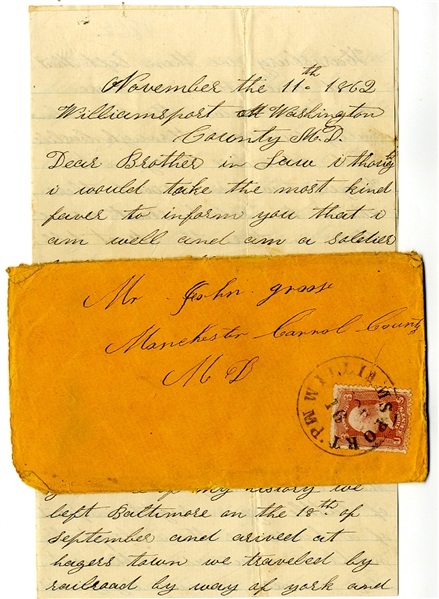 November the 11th 1862
Williamsport Washington
County M.D.
Dear Brother in Law i thought
i would take the most kind
faver to inform you that i
am well and am a soldier
Mr John
Manchester Carrol County
M D
WILLIAMSPORT MD
my history we
left Baltimore on the 18th of
September and arived at
hagers town we traveled by
railroad by way of york and